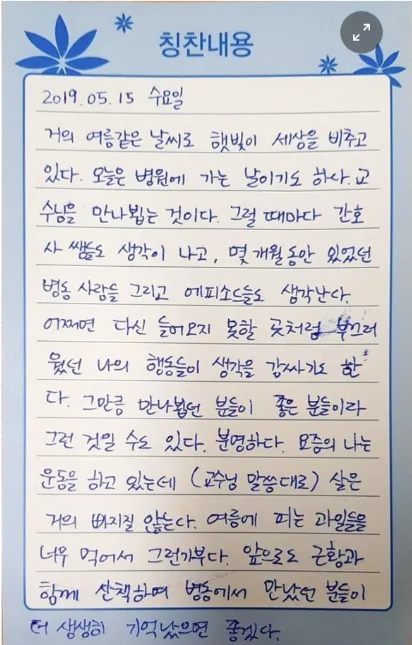 칭찬내용
2019.05.15 수요일
거의 여름같은 날씨로 햇빛이 세상을 비추고
있다. 오늘은 병원에 가는 날이기도 하다. 교
수님을 만나뵙는 것이다. 그럴 때마다 간호
사 쌤들도 생각이 나고, 몇 개월동안 있었던
병동 사람들 그리고 에피소드들도 생각난다.
어쩌면 다신 들어오지 못할 곳처럼 부끄러
웠던 나의 행동들이 생각을 감싸기도 한
다. 그만큼 만나뵙던 분들이 좋은 분들이라
그런 것일 수도 있다. 분명하다. 요즘의 나는
운동을 하고 있는데 (교수님 말씀대로) 살은
거의 빠지질 않는다. 여름에 피는 과일들을
너무 먹어서 그런가부다. 앞으로도 근황과
함께 산책하며 병동에서 만났던 분들이
더 생생히 기억났으면 좋겠다.